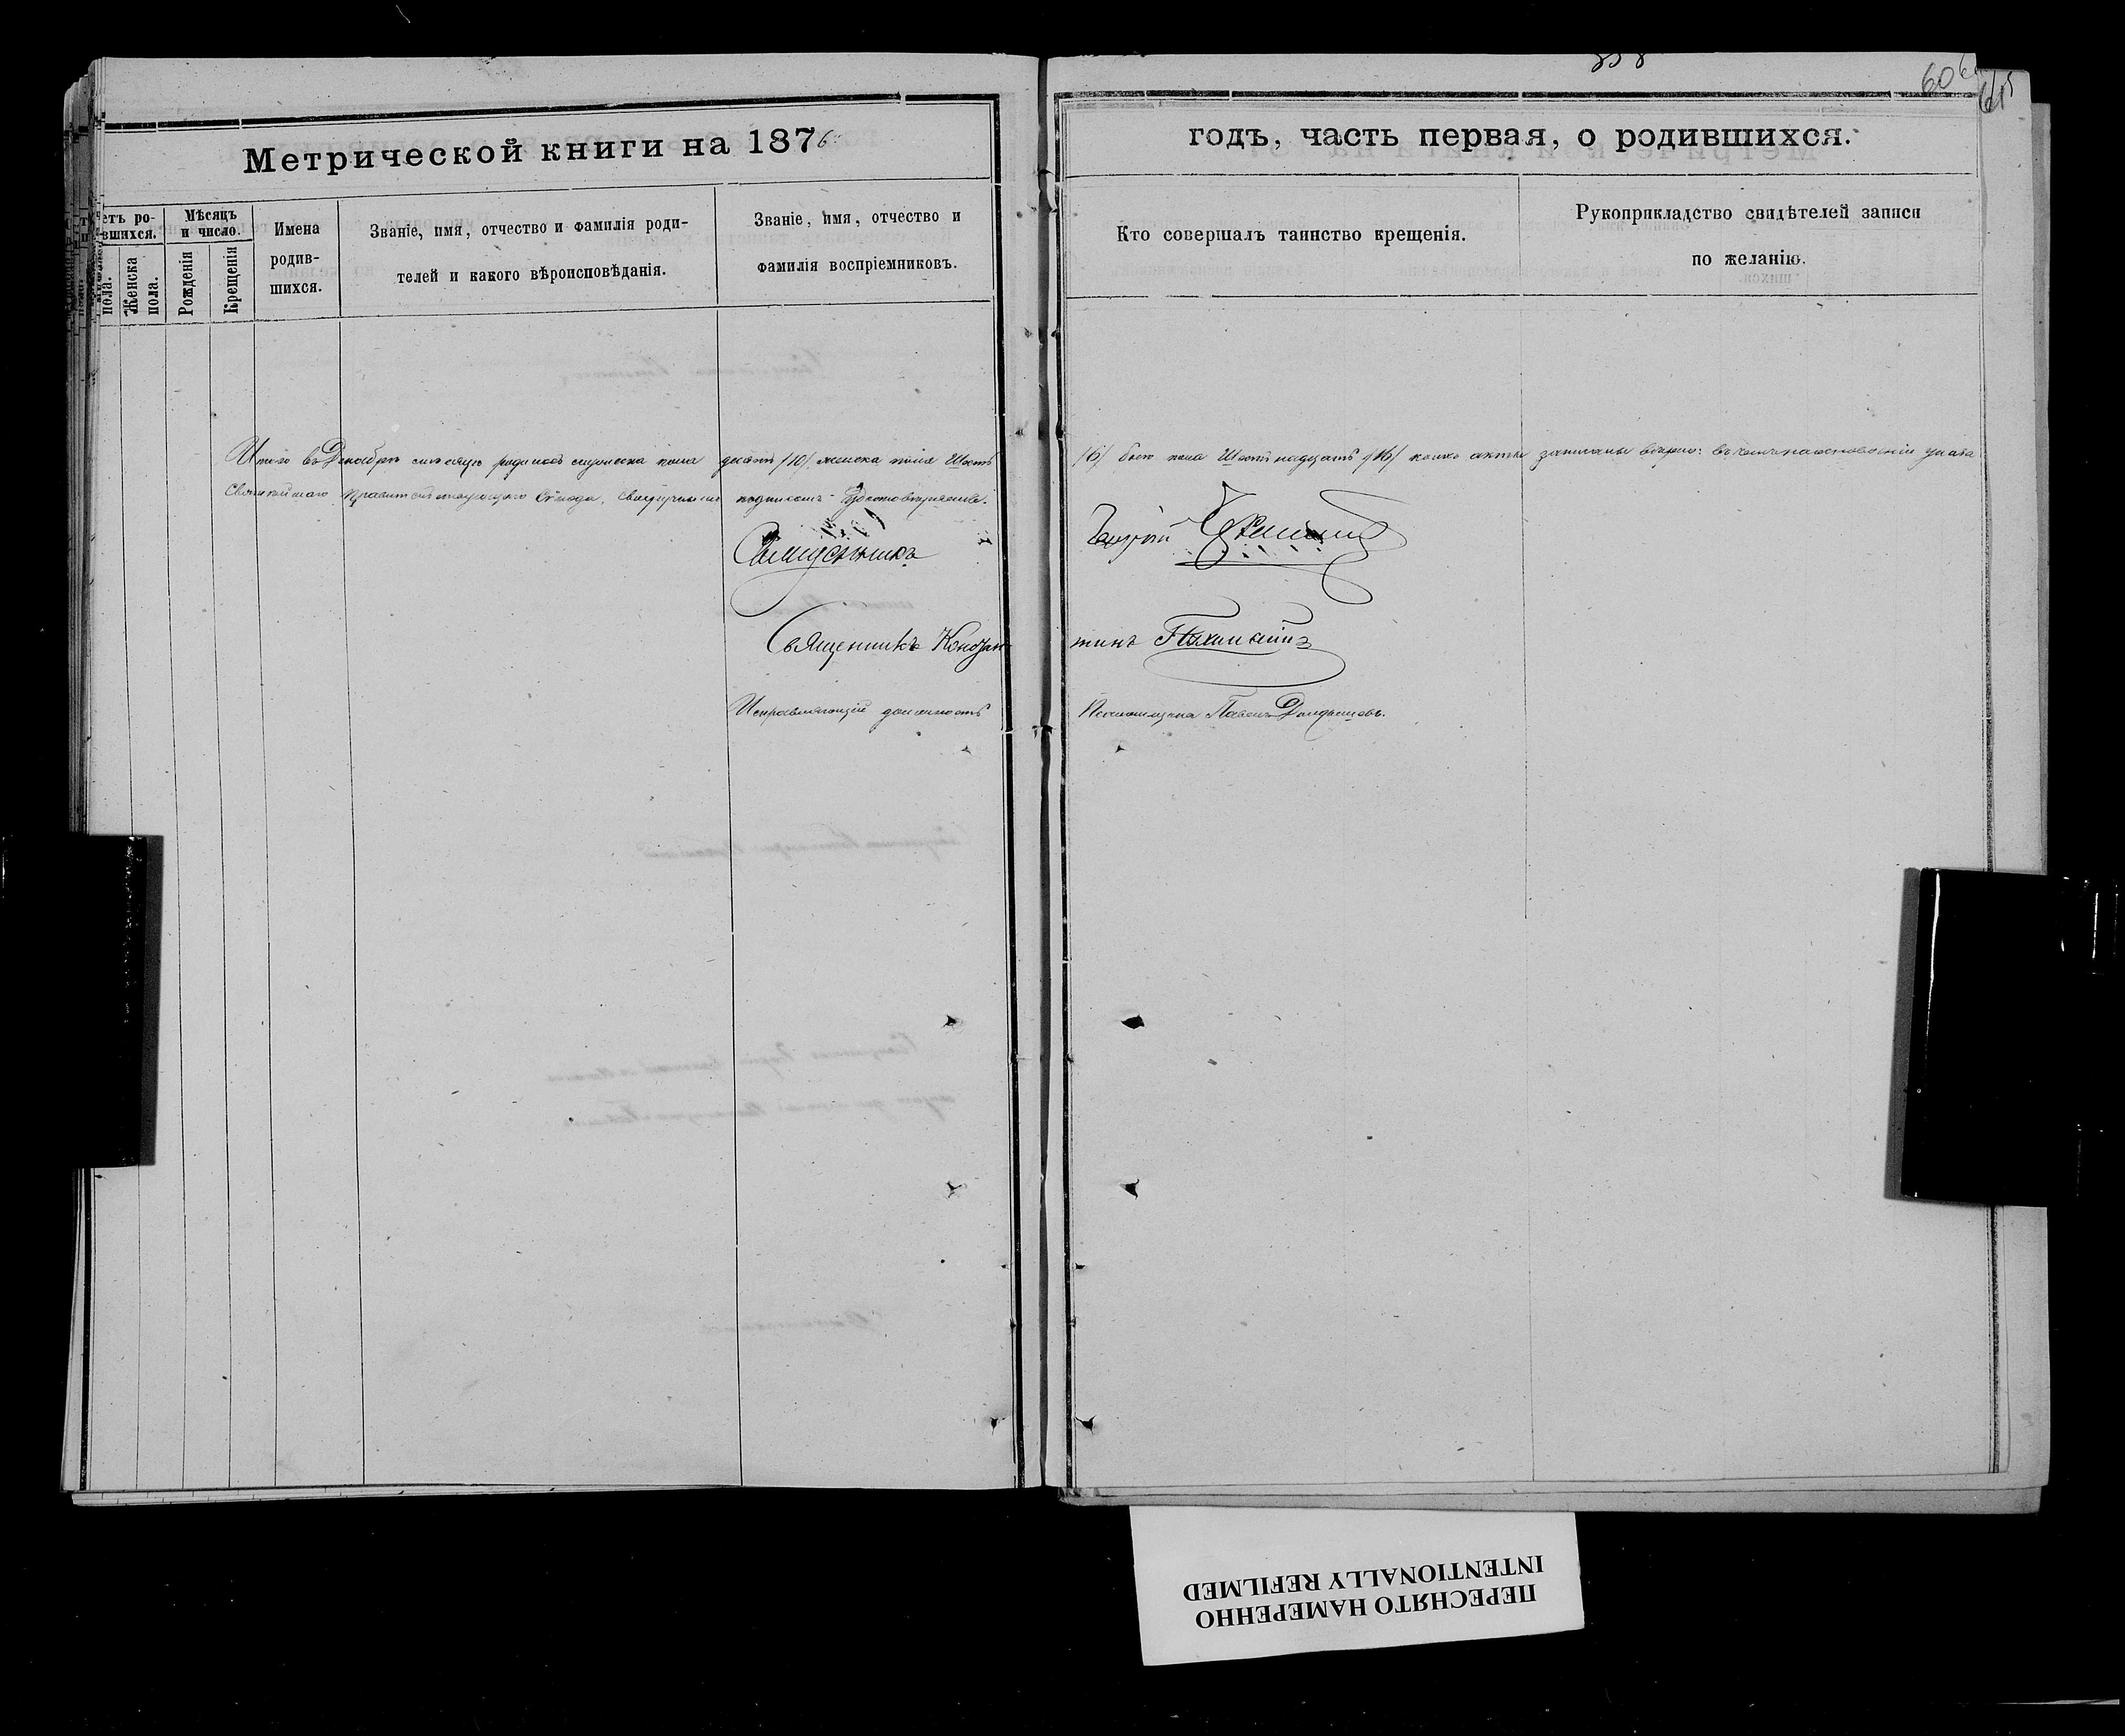 858
60
615
Метрической книги на 1876
годъ, часть первая, о родившихся.
етъ ро-
вшихся.
Мѣсяцъ
и число.
пола.
Женска
пола.
Рожденія
Крещенія
Имена
родив-
шихся.
Званіе, имя, отчество и фамилія роди-
телей и какого вѣроисповѣданія.
Званіе, имя, отчество и
фамилія воспріемниковъ.
Кто совершалъ таинство крещенія.
Рукоприкладство свидѣтелей записи
по желанію.
Итого въ Декабрѣ мѣсяцѣ родилось мужеска пола десять /10/ женска пола Шесть /6/ обоего пола Шестнадцать /16/ акты записаны вѣрно: въ на основаніи указа
Святѣйшаго Правительствующаго Сѵнода, подписомъ удостовѣряемъ.
Священникъ Георгій
Священникъ Констан тинъ
Исправляющій должность Псаломщика Павелъ
ПЕРЕСНЯТО НАМЕРЕННО
INTENTIONALLY REFILMED